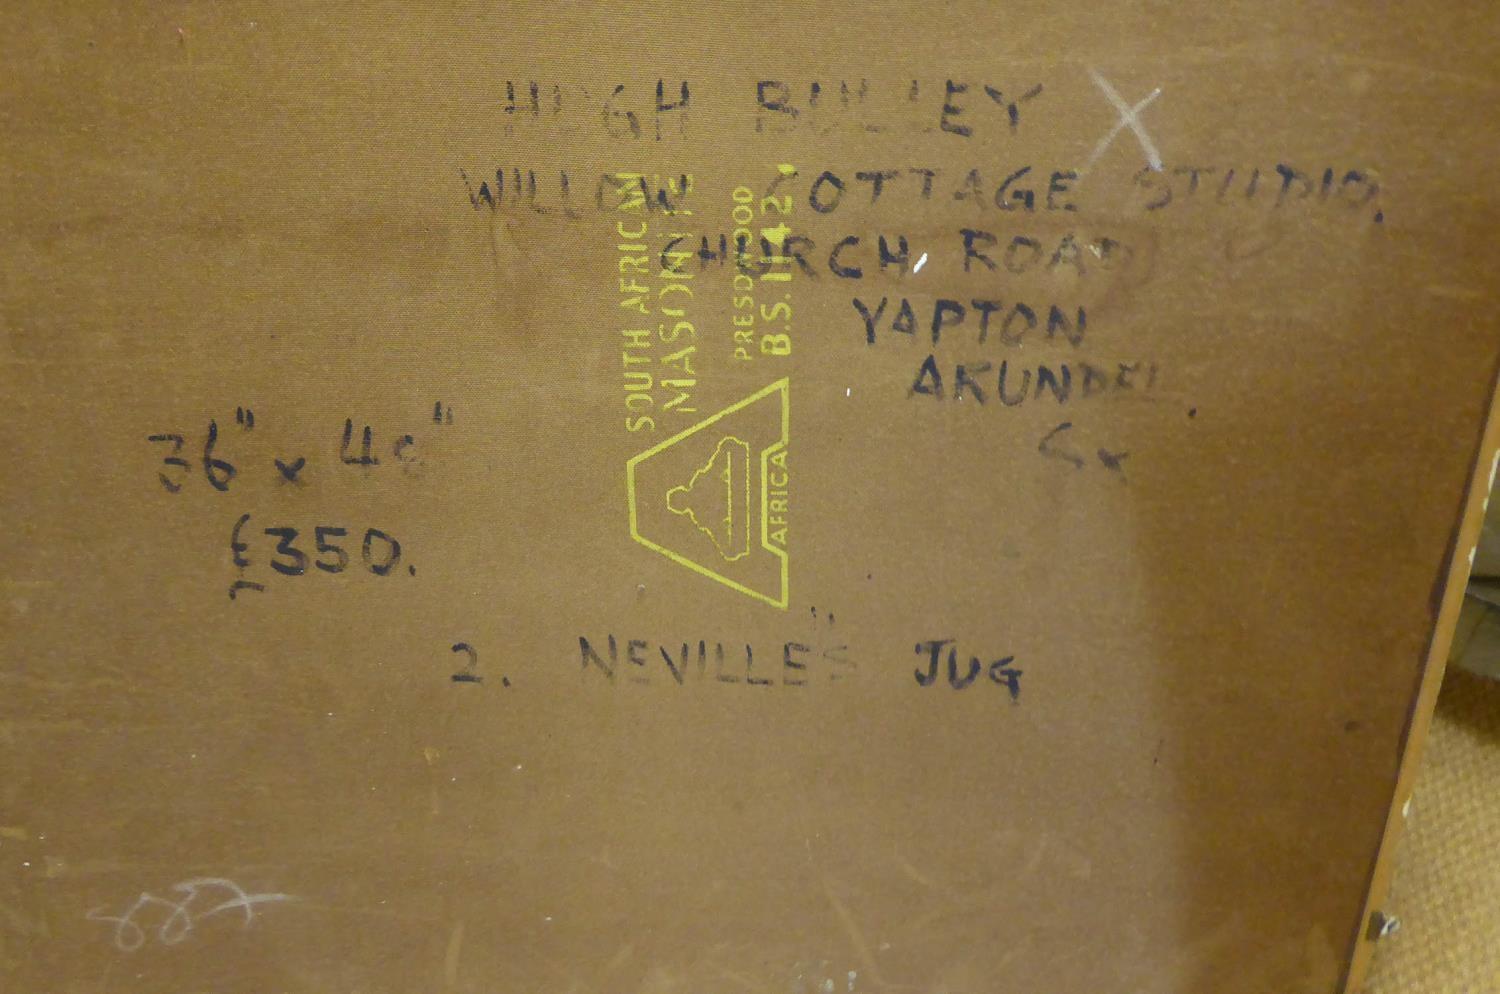 HUGH BULLEY
WILLOW COTTAGE STUDIO.
CHURCH ROAD
YAPTON
ARUNDEL
Sx
36" x 48"
£350.
SOUTH AFRICAN
MASONITE
PRESDWOOD
B.S. 1142
AFRICA
2. NEVILLE'S JUG